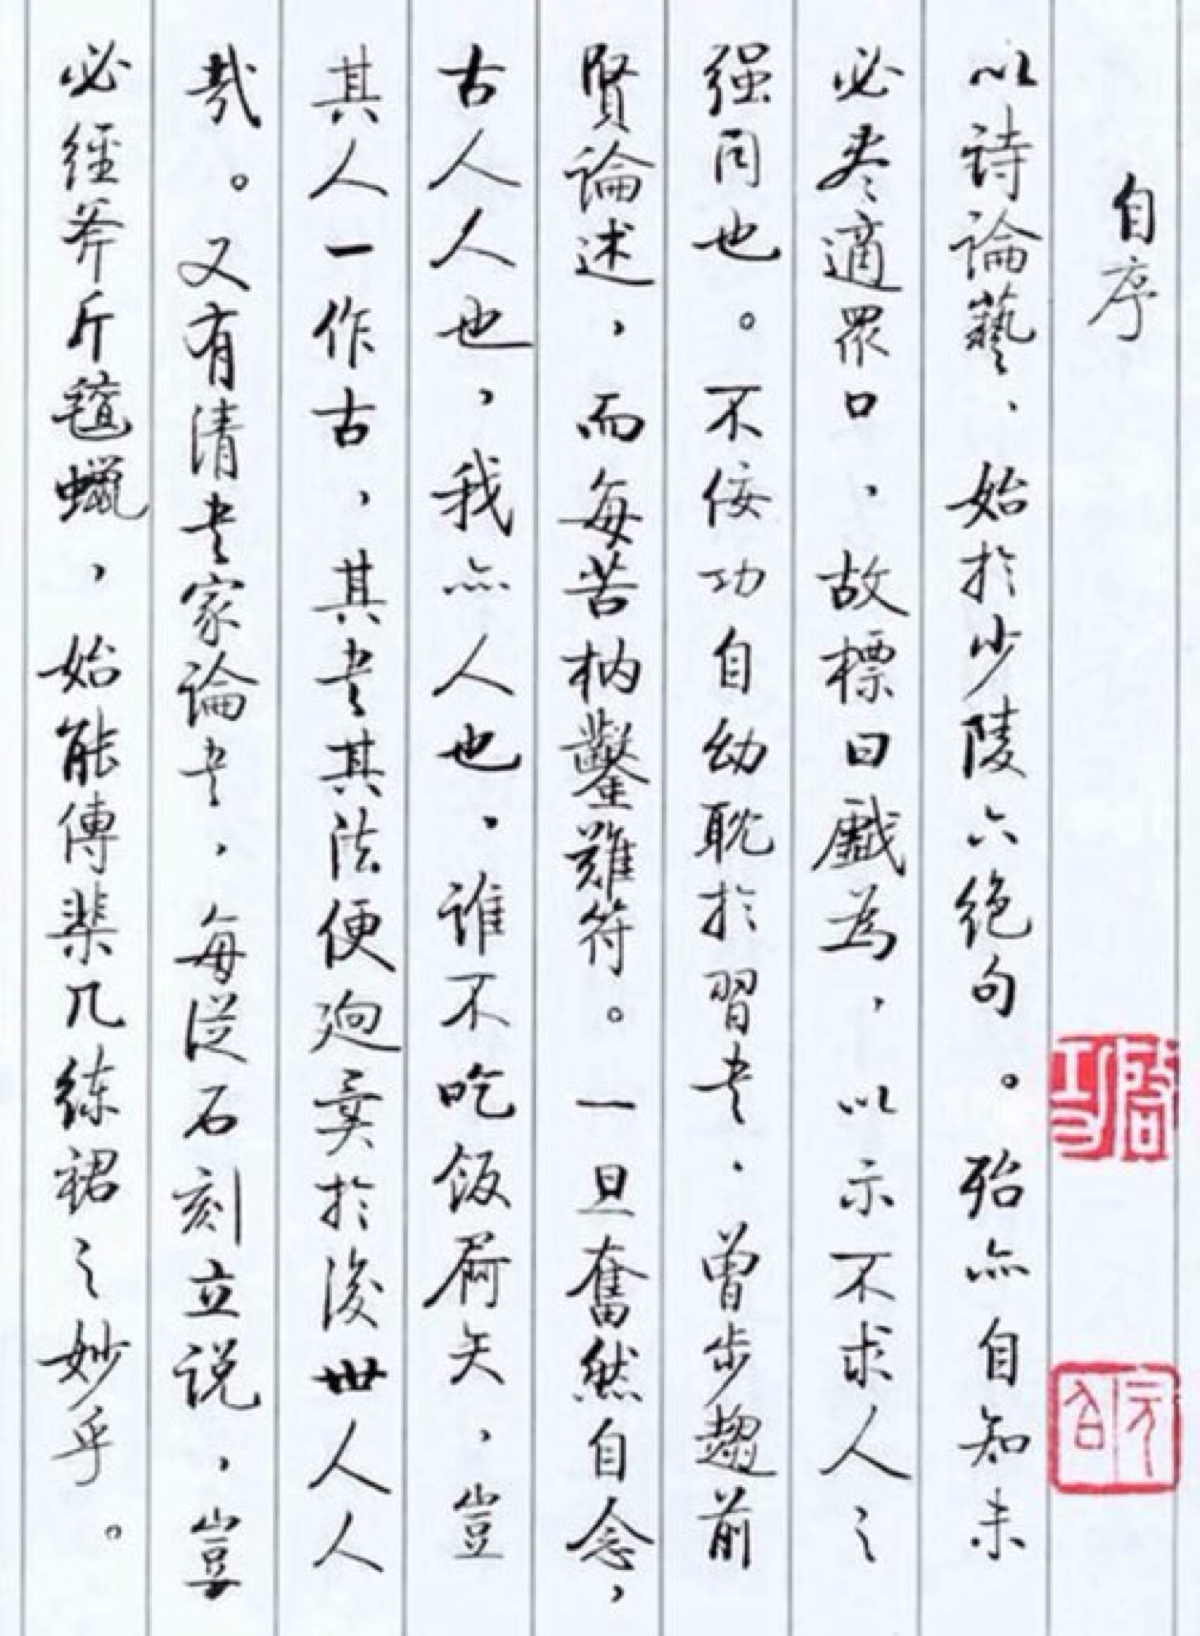 自序
以詩論藝、始於少陵六絶句。殆亦自知未
必盡適眾口、故標曰戲為，以示不求人之
强同也。不佞功自幼耽於習書、曾步趨前
賢論述，而每苦枘鑿難符。一旦奮然自念，
古人人也，我亦人也、誰不吃飯屙矢、豈
其人一作古，其書其法便迥異於後世人人
哉。又有清書家論書，每從石刻立說，豈
必經斧斤氊蠟，始能傳棐几練裙之妙乎。
啓功
元白